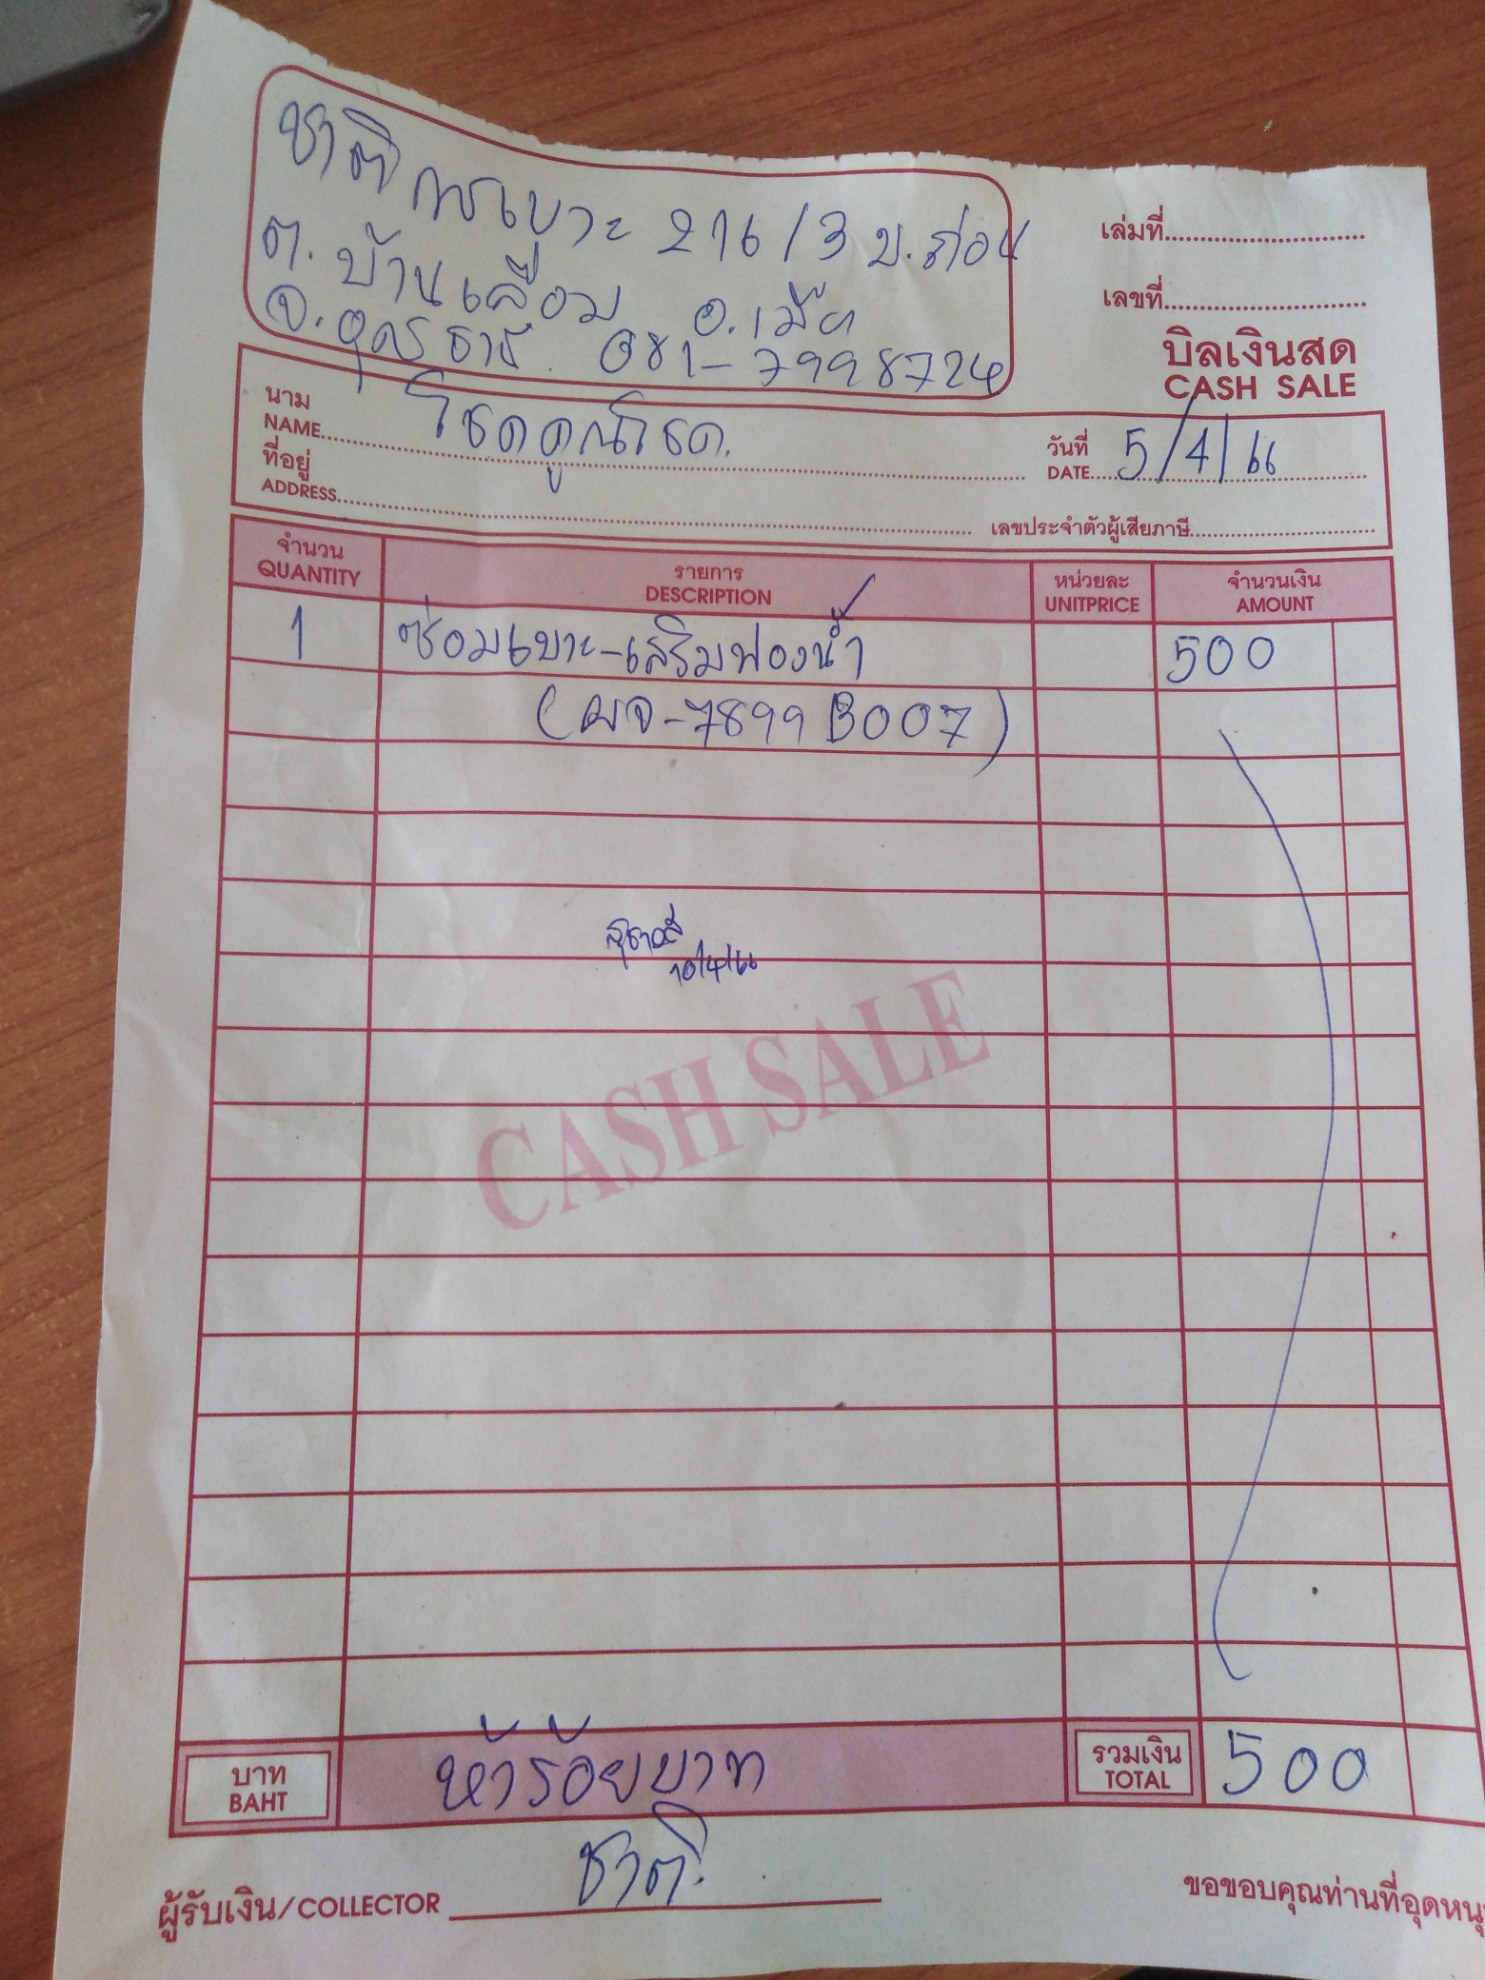 ชาติการเบาะ 216/3 บ.ก่อน
ต.บ้านเลื่อม อ.เมือง
จ.อุดรธานี 081-7998724
เล่มที่
เลขที่
บิลเงินสด
CASH SALE
นาม
NAME โชคคูณโชค.
วันที่
DATE 5/4/66
ที่อยู่
ADDRESS
เลขประจำตัวผู้เสียภาษี
จำนวน รายการ หน่วยละ จำนวนเงิน
QUANTITY DESCRIPTION UNITPRICE AMOUNT
1 ซ่อมเบาะ-เสริมฟองน้ำ 500
(ผจ-7899 B007)
10/4/66
CASH SALE
บาท
BAHT ห้าร้อยบาท
รวมเงิน
TOTAL 500
ผู้รับเงิน/COLLECTOR ชาติ
ขอขอบคุณท่านที่อุดหนุ